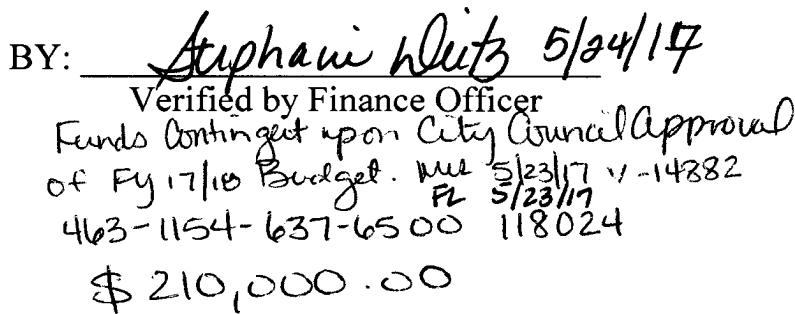 BY: Stephanie Deitz 5/24/17
Verified by Finance Officer
Funds Contingent upon City Council approval
of FY 17/18 Budget. 5/23/17 V-14882
FL 5/23/17
463-1154-637-6500 118024
$210,000.00